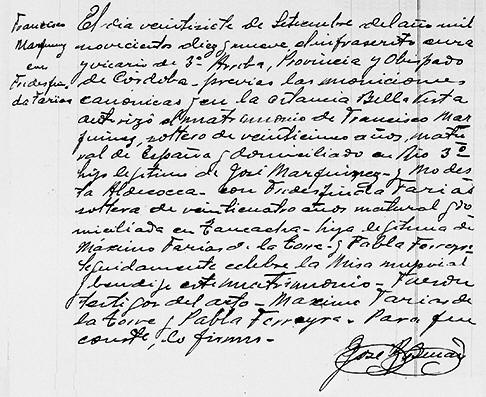 Francisco
Marquinez
en
Fridesfin-
da Farias
El dia veintisiete de Setiembre del año mil
novecientos diez y nueve, el infrascrito cura
y vicario de 3º Arriba, Provincia y Obispado
de Córdoba - previas las moniciones
canonicas y en la estancia Bella Vista
autorizó el matrimonio de Francisco Mar
quinez, soltero de veinticinco años, natu
ral de España y domiciliado en Rio 3º
hijo legitimo de José Marquinez - y Modes
ta Aldecocea - con Fridesfinda Farias
soltera de veinticuatro años natural y do
miciliada en Tancacha - hija legitima de
Máximo Farias de la Torre - y Pabla Ferreyra.
Seguidamente celebré la Misa nupcial
y bendije este matrimonio - Fueron
testigos del acto - Maximo Farias de
la Torre y Pabla Ferreyra - Para que
conste, lo firmo -
José